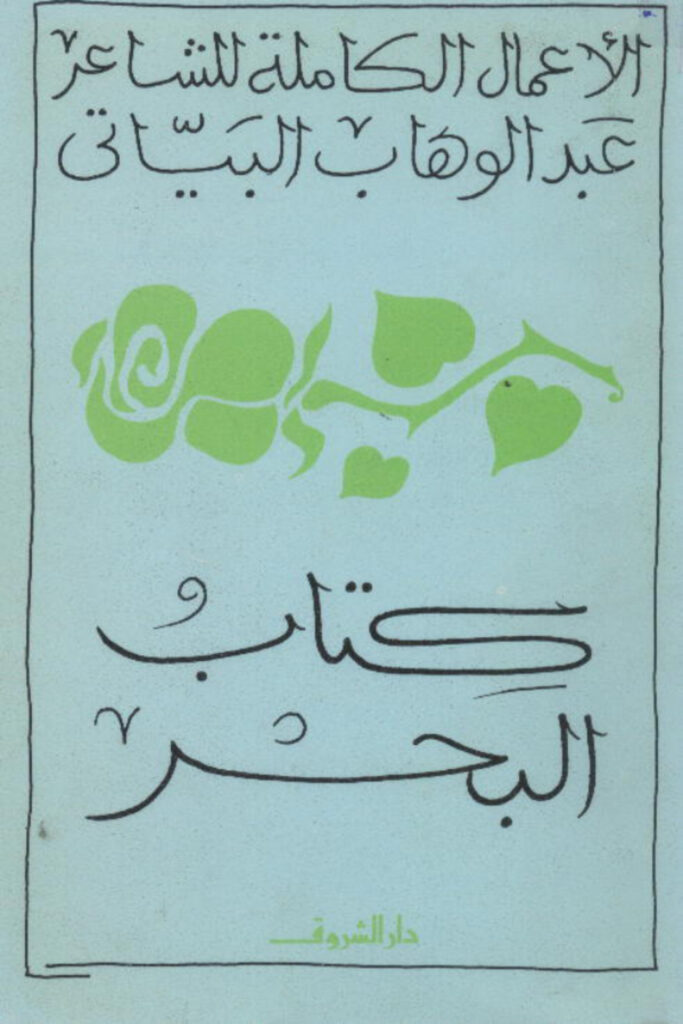 الأعمال الكاملة للشاعر
عَبد الوهَاب البَيّاتي
كِتابُ
البحر
دار الشروق